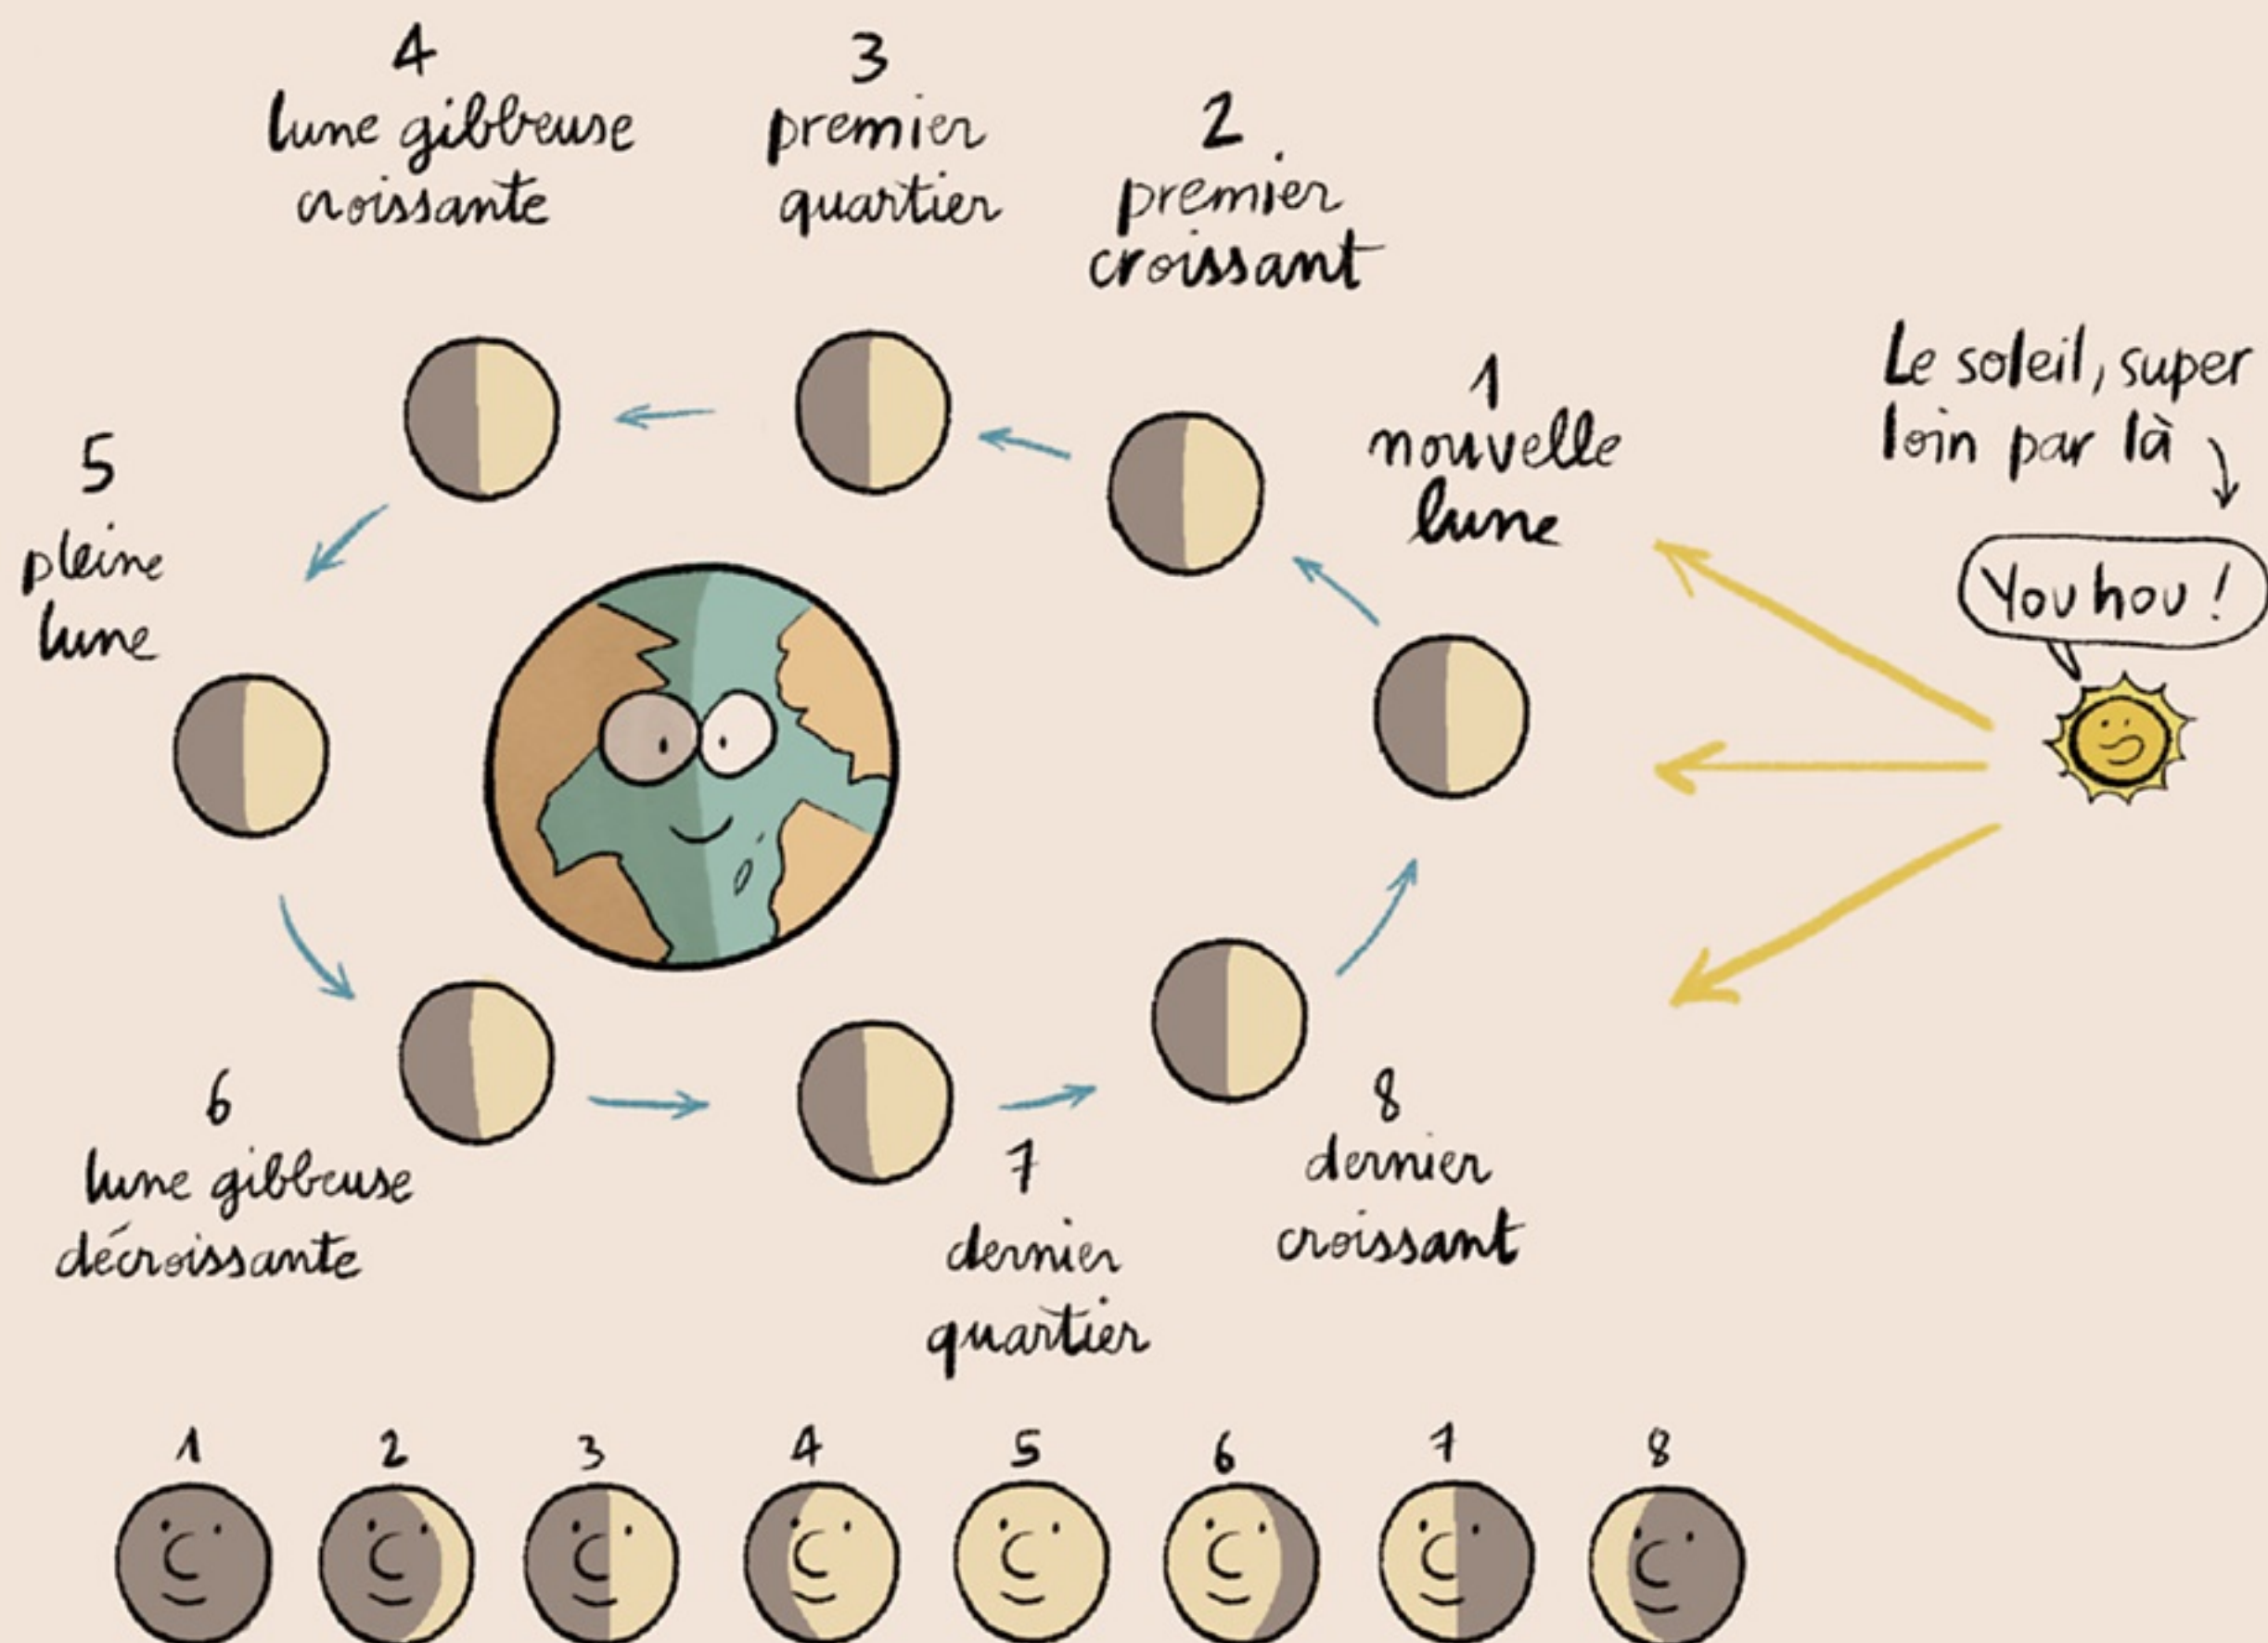 4
lune gibbeuse
croissante
3
premier
quartier
2
premier
croissant
1
nouvelle
lune
Le soleil, super
loin par là
You hou !
5
pleine
lune
6
lune gibbeuse
décroissante
7
dernier
quartier
8
dernier
croissant
1 2 3 4 5 6 7 8